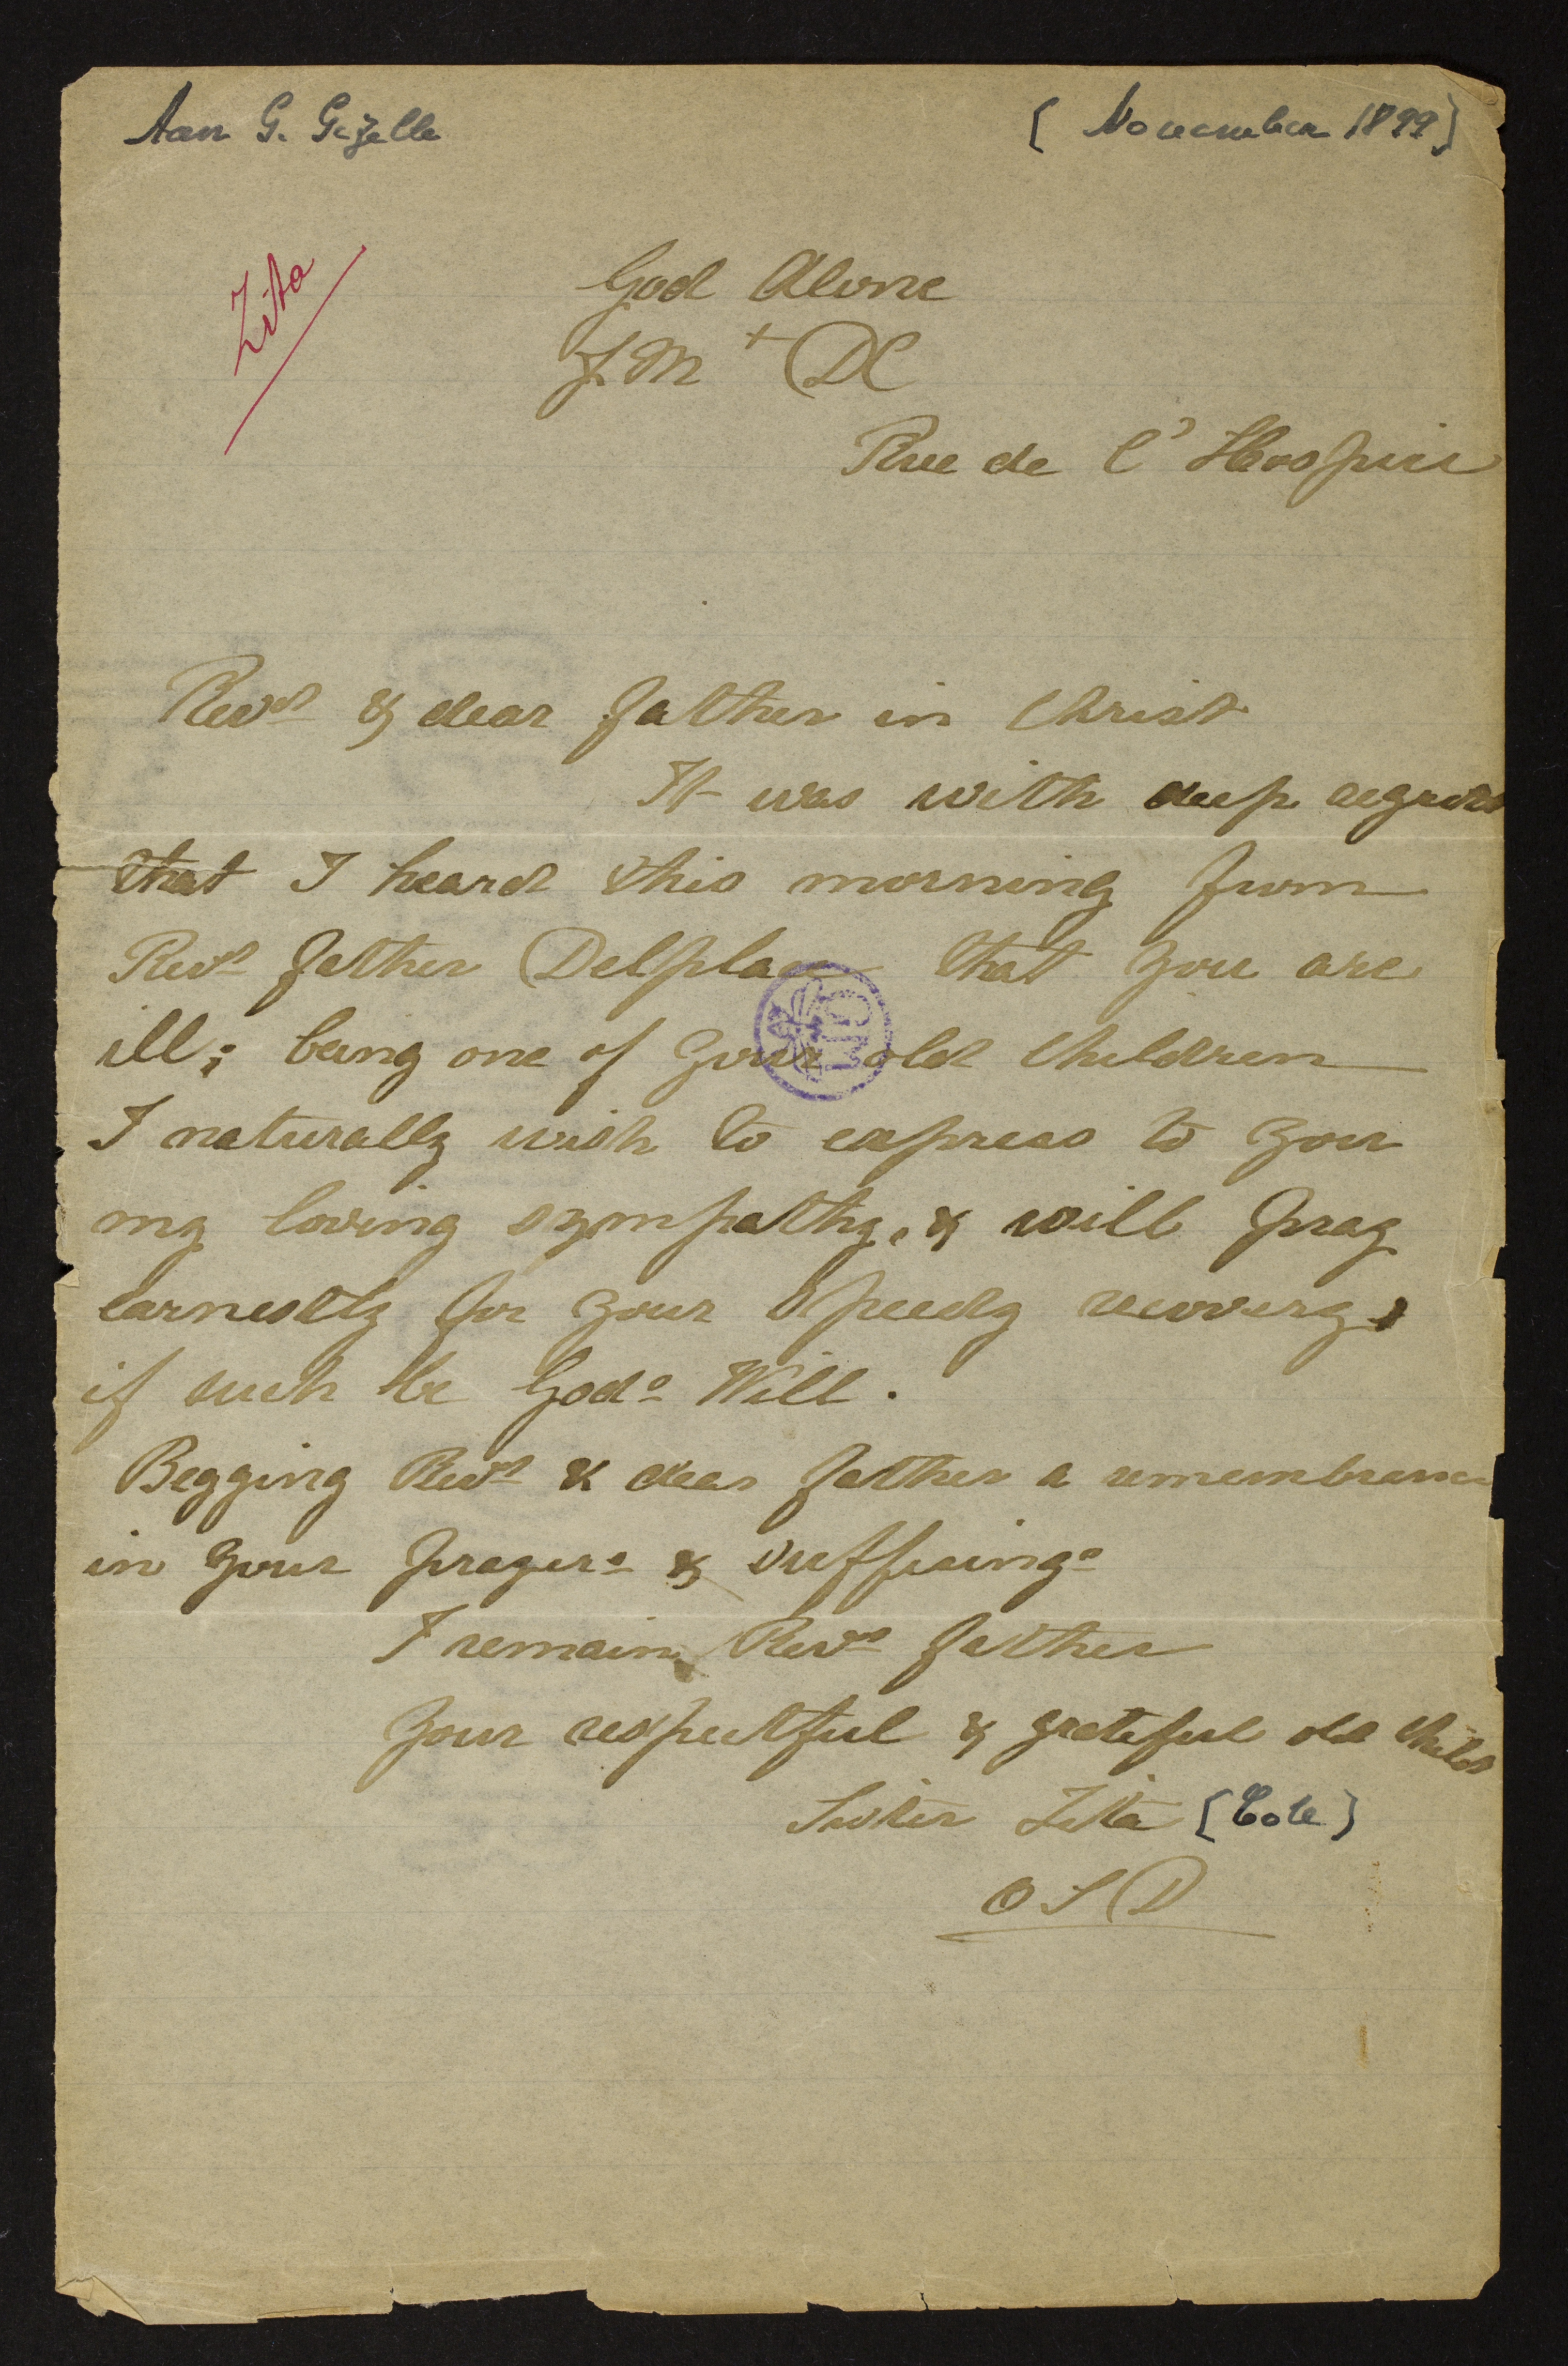 Aan G. Gezelle [November 1899]
Zita
God Alone
J.M + DC
Rue de l'Hospice
Revd & dear father in Christ
It was with deep regret
that I heard this morning from
Revd father Delplace that you are
ill; being one of your old children
I naturally wish to express to you
my loving sympathy, & will pray
earnestly for your speedy recovery,
if such be Gods Will.
Begging Revd & dear father a remembrance
in your prayers & sufferings
I remain, Revd father
Your respectful & grateful old child
Sister Zita [Cole]
O S D